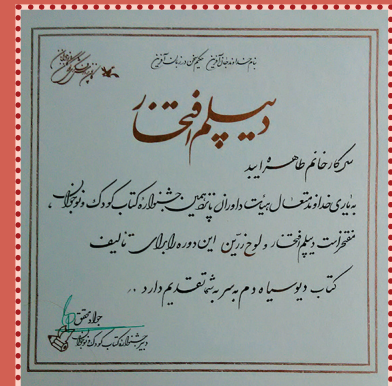 به نام خداوند جان آفرین حکیم سخن در زبان آفرین
دیپلم افتخار
سرکار خانم طاهره ایبد
به یاری خداوند متعال هیئت داوران پانزدهمین جشنواره کتاب کودک و نوجوان،
مفتخر است دیپلم افتخار و لوح زرین این دوره را برای تألیف
کتاب دیو سیاه دم به سر به شما تقدیم دارد.
جواد محقق
دبیر جشنواره کتاب کودک و نوجوان